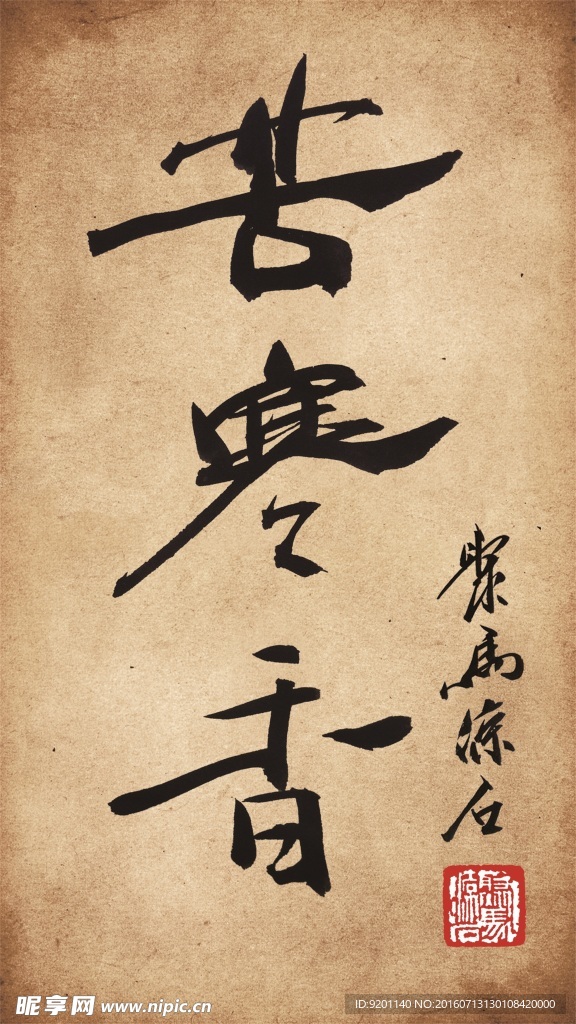 苦寒香
聚马凉石
昵享网 www.nipic.cn
ID:9201140 NO:20160713130108420000